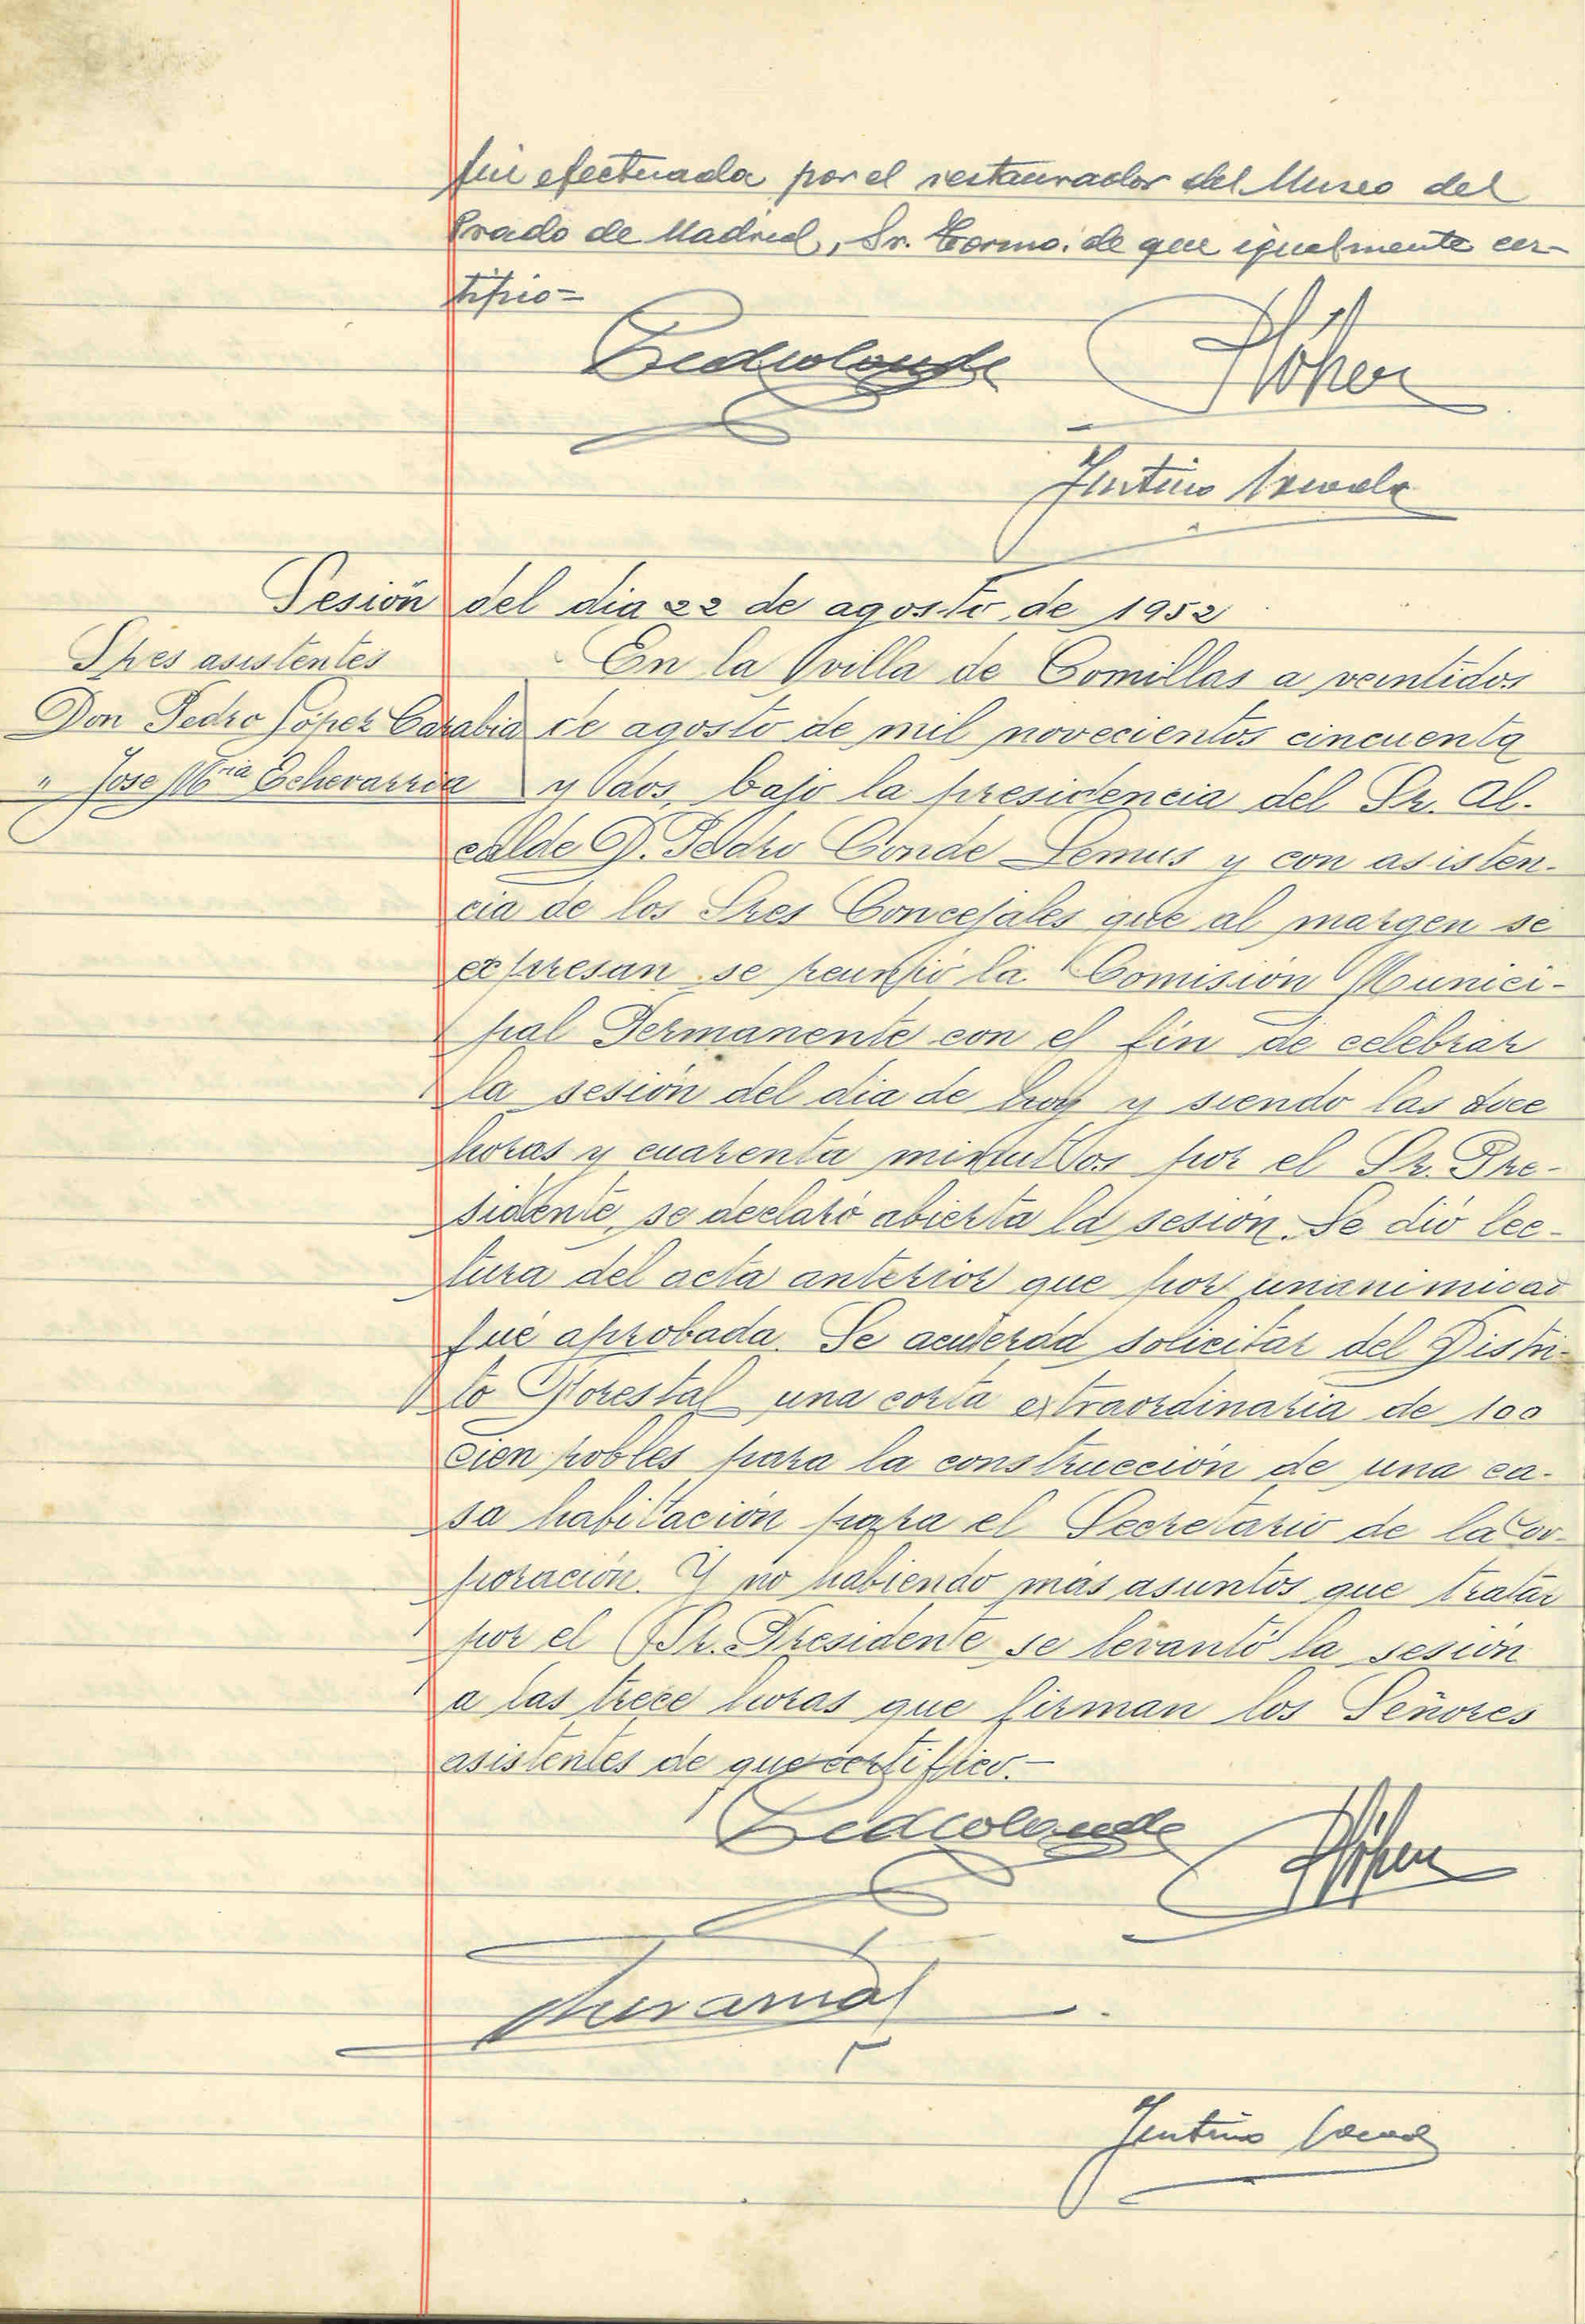 fué efectuada por el restaurador del Museo del
Prado de Madrid, Sr. Tormo. de que igualmente cer-
tifico=
Sesión del dia 22 de agosto de 1952
Sres asistentes
Don Pedro López Carabia
" Jose Mría Echevarria
En la villa de Comillas a veintidos
de agosto de mil novecientos cincuenta
y dos, bajo la presidencia del Sr. Al-
calde D. Pedro Conde Lemus y con asisten-
cia de los Sres Concejales que al margen se
expresan se reunió la Comisión Munici-
pal Permanente con el fin de celebrar
la sesión del dia de hoy y siendo las doce
horas y cuarenta minutos por el Sr. Pre-
sidente, se declaró abierta la sesión. Se dió lec-
tura del acta anterior que por unanimidad
fué aprobada. Se acuerda solicitar del Distri-
to Forestal una corta extraordinaria de 100
cien robles para la construcción de una ca-
sa habitación para el Secretario de la Cor-
poración. Y no habiendo más asuntos que tratar
por el Sr. Presidente se levantó la sesión
a las trece horas que firman los Señores
asistentes de que certifico.-